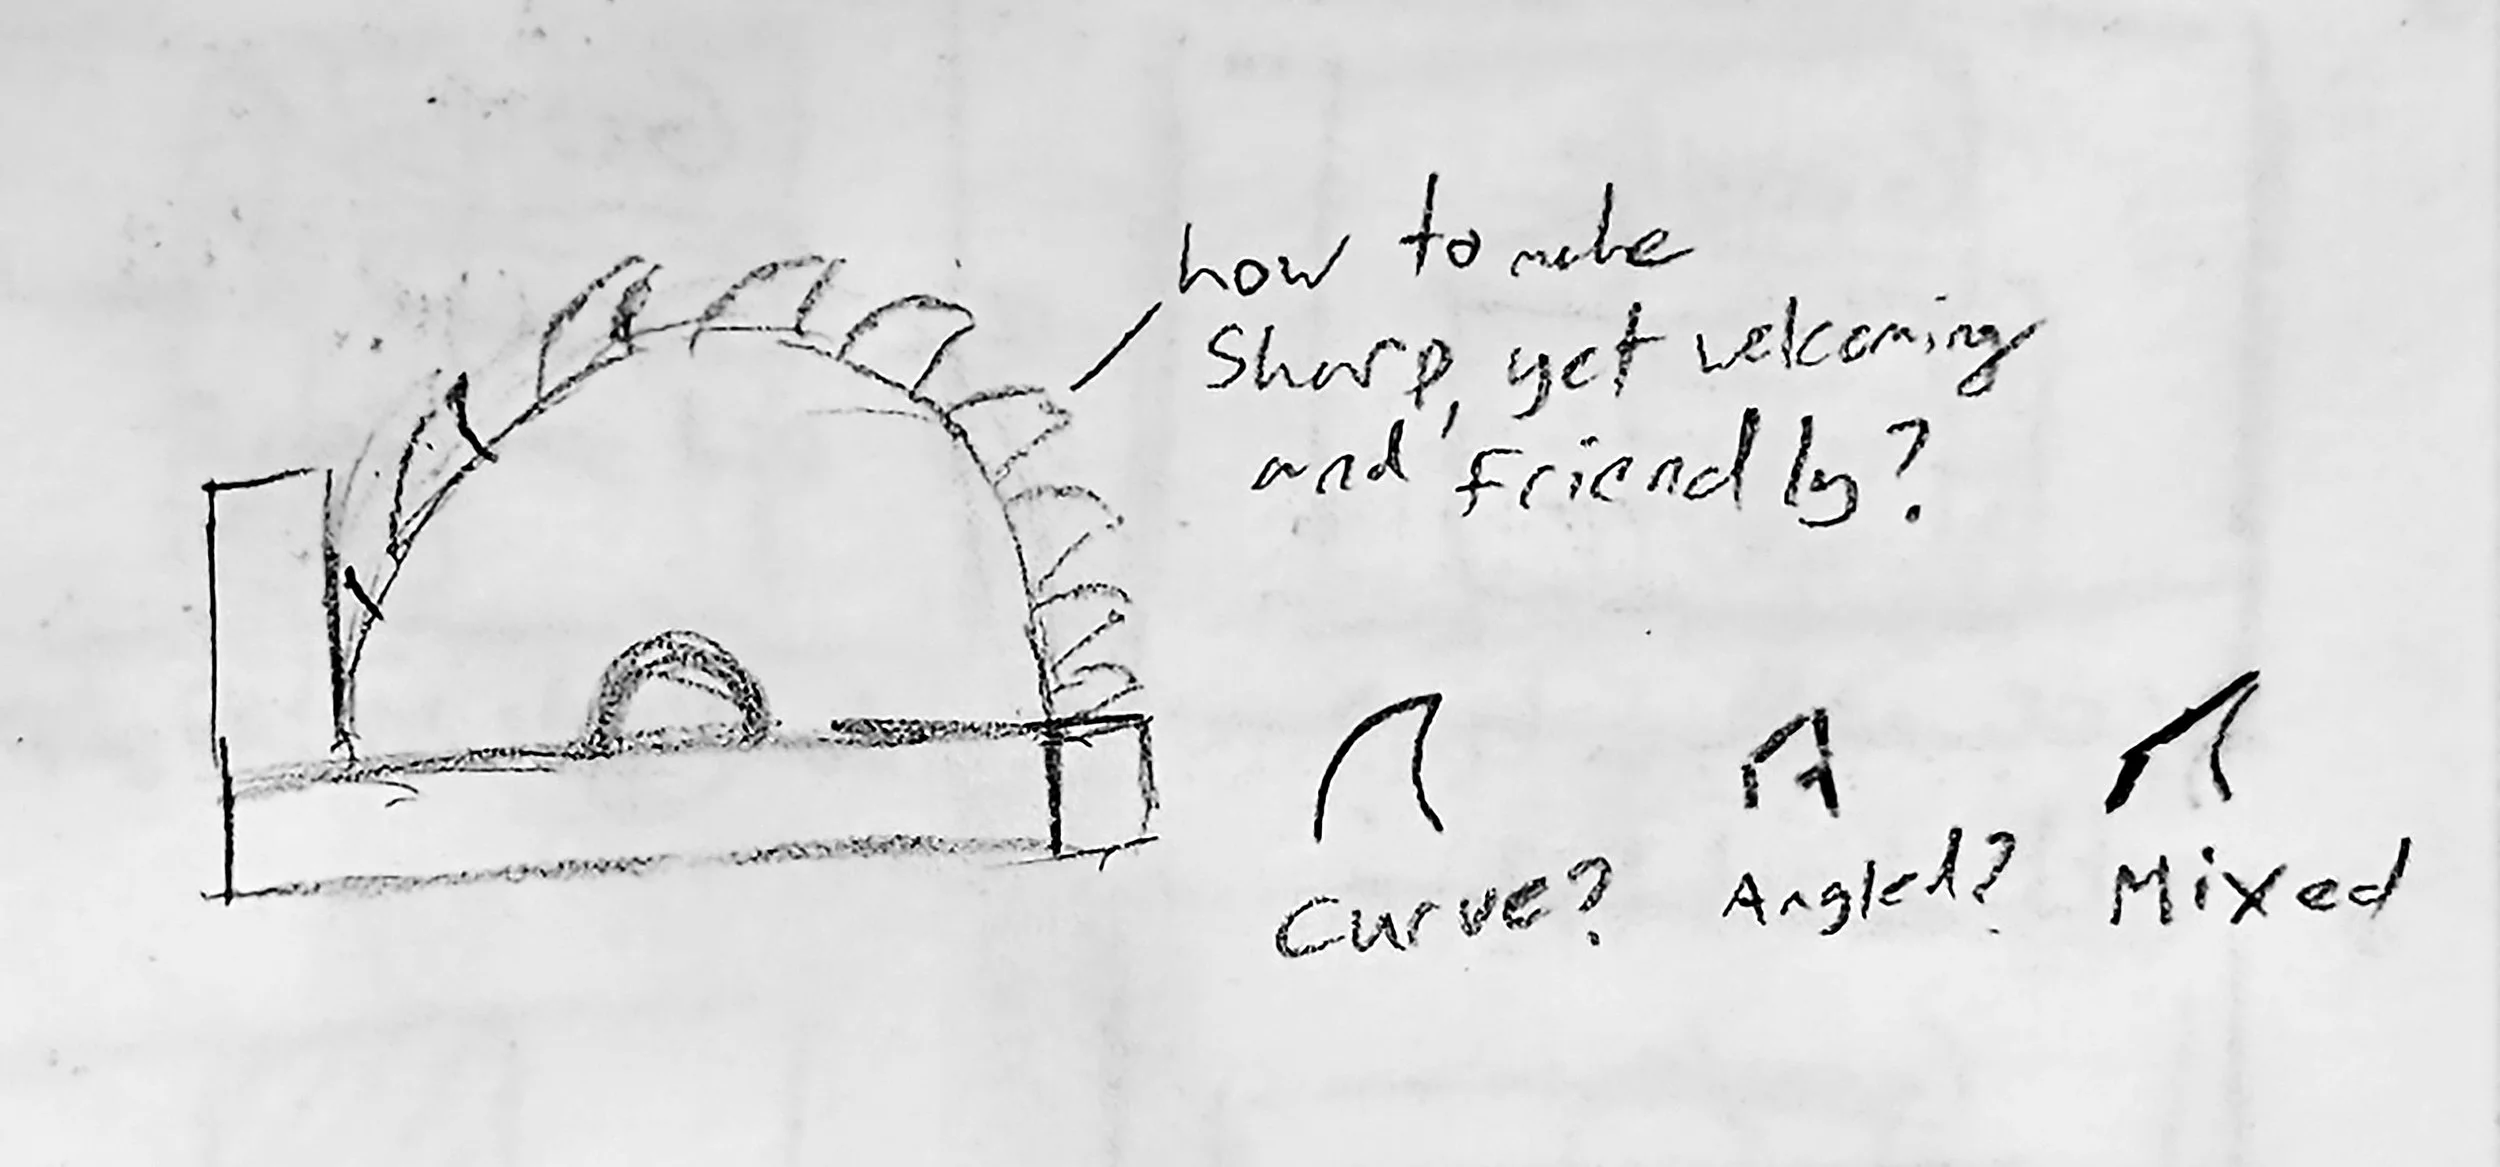 how to make
Sharp, yet welcoming
and friendly?
Curve?
Angled?
Mixed